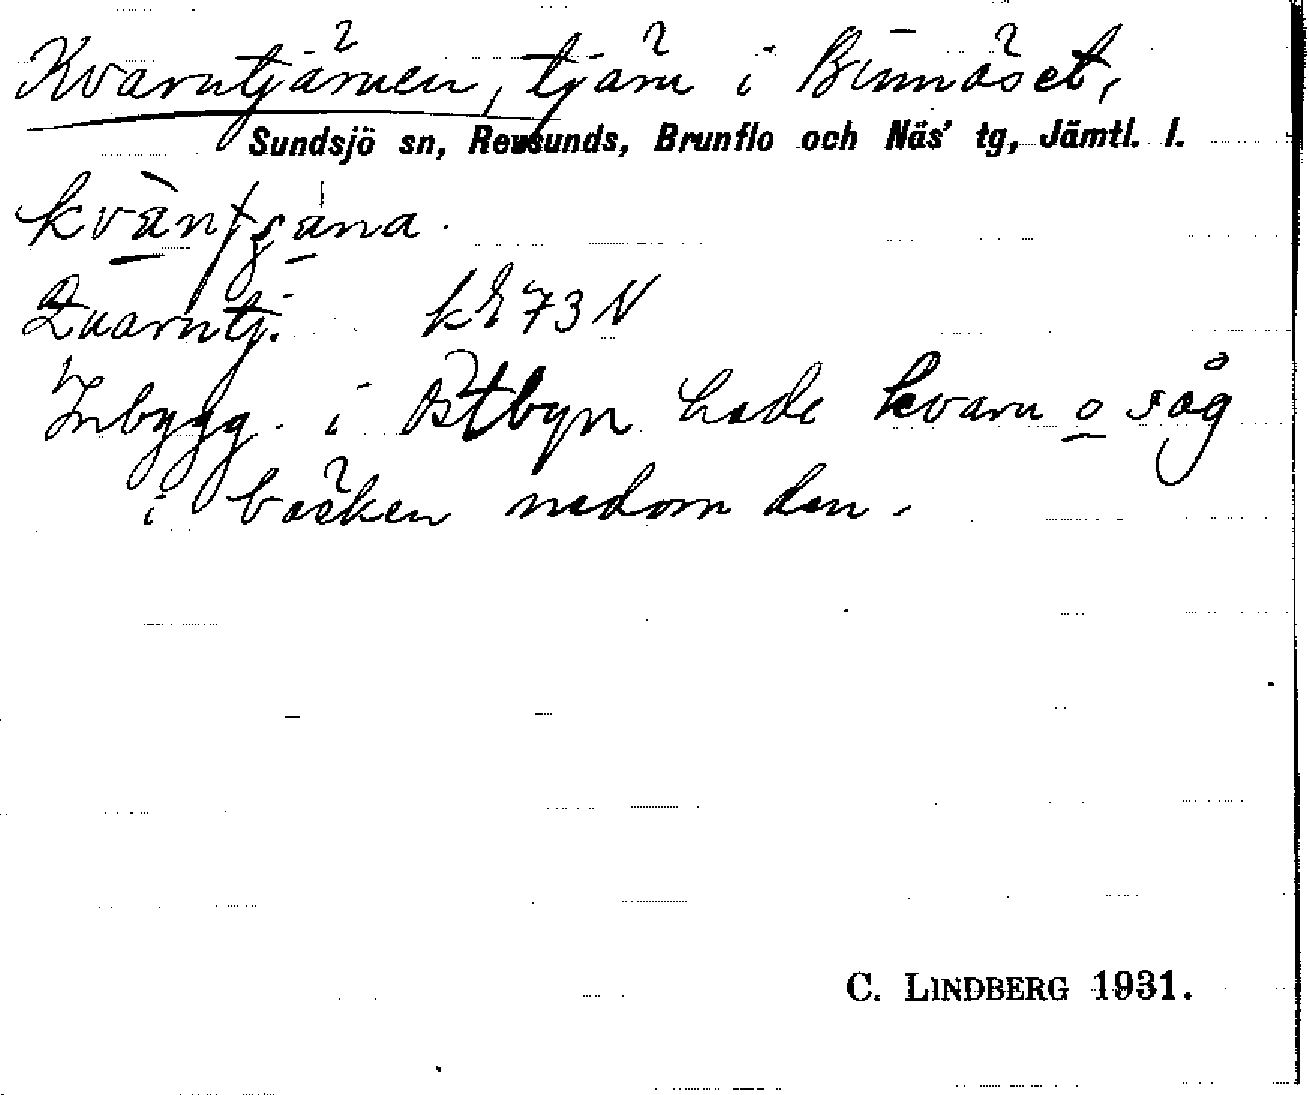 Kvarntjärnen, tjärn i Binnäset,
Sundsjö sn, Revsunds, Brunflo och Näs' tg, Jämtl. l.
Quarntj. kE 73 N
Inbygg. i Östbyn hade kvarn o såg
i bäcken nedom den.
C. LINDBERG 1931.